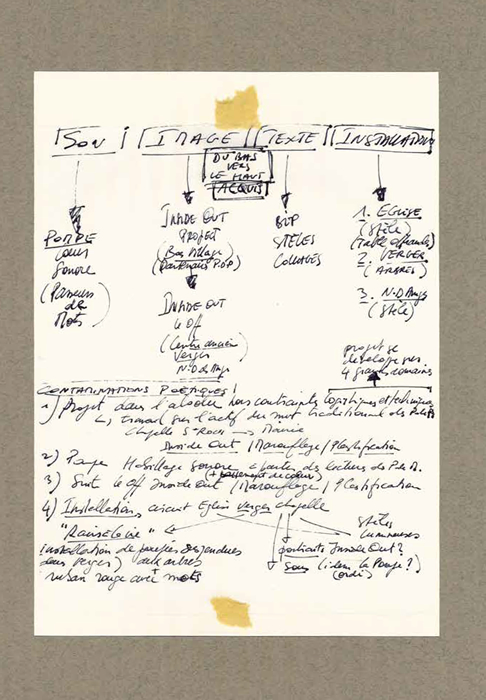 SON IMAGE TEXTE INSTALLATION
DU BAS
VERS
LE HAUT
ACQUIS
POMPE
Sonore
(Passeurs
de
Mots)
INSIDE OUT
PROJECT
(Bas Village)
(Partenaires P.O.P)
INSIDE OUT
le Off
(Centre ancien
Verger
N-D des Anges
BIP
STÈLES
COLLAGES
1. EGLISE
(Stèle)
2. VERGER
(ARBRES)
3. N-D Anges
(Stèle)
projet se
développe sur
4 grands domaines
CONTAMINATIONS POÉTIQUES!
1) Projet dans l'absolu hors contraintes logistiques et techniques
↳ travail sur l'actif du mot traditionnel des
Chapelle St-Roch → Mairie
Inside Out / Marouflage / Plastification
2) Pompe Habillage Sonore à partir des lectures de P.d.M.
3) Suit le Off Inside Out / Marouflage / Plastification
4) Installations circuit Eglise Verger chapelle
installation de
dans Verger) aux arbres
ruban rouge avec mots
Stèles
Lumineuses
portraits Inside Out?
Sons (idem la Pompe?)